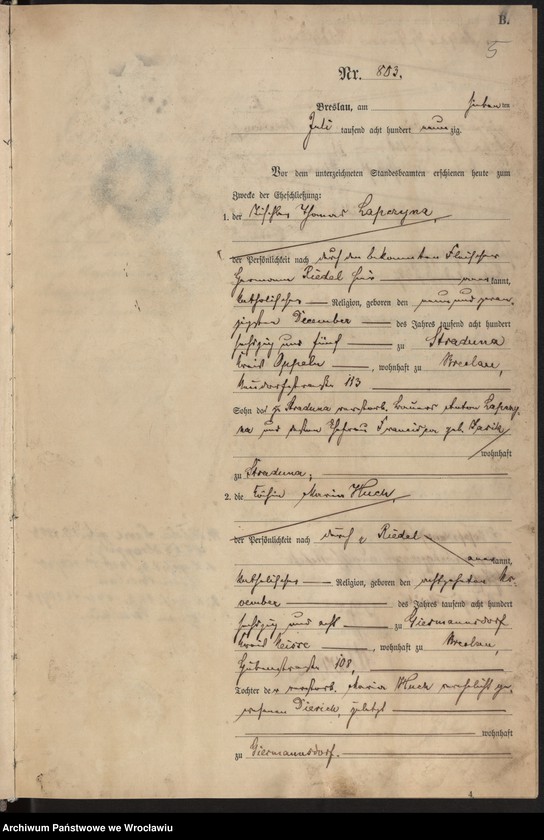 B.
5
Nr. 803.
Breslau, am sieben ten
Juli tausend acht hundert neun zig.
Vor dem unterzeichneten Standesbeamten erschienen heute zum
Zwecke der Eheschließung:
1. der Tischler Thomas Lapczyna,
der Persönlichkeit nach durch den bekannten Fleischer
Hermann Riedel hier anerkannt,
katholischer Religion, geboren den neunundzwan-
zigsten December des Jahres tausend acht hundert
sechzig und fünf zu Straduna
Kreis Oppeln, wohnhaft zu Breslau,
Neudorfstraße 113
Sohn des zu Straduna verstorb. Bauers Anton Lapczy-
na und dessen Ehefrau Franciska geb.
wohnhaft
zu Straduna;
2. die Köchin Maria Huch,
der Persönlichkeit nach durch p Riedel
anerkannt,
katholischer Religion, geboren den achtzehnten No-
vember des Jahres tausend acht hundert
sechzig und acht zu Giermannsdorf
Kreis Neisse, wohnhaft zu Breslau,
108,
Tochter der verstorb. Maria Huch verehelicht ge-
wesenen Dierich, zuletzt
wohnhaft
zu Giermannsdorf.
4
Archiwum Państwowe we Wrocławiu